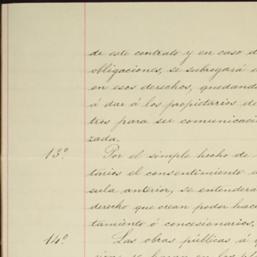 de este contrato y en caso d
obligaciones, se subrogará e
en esos derechos, quedando
á dar á los propietarios de
tres para ser comunicació
zada.
13º Por el simple hecho de
tarios el consentimiento e
sula anterior, se entenderá
derecho que crean poder hace
tamiento ó concesionarios,
14º Las obras públicas á q